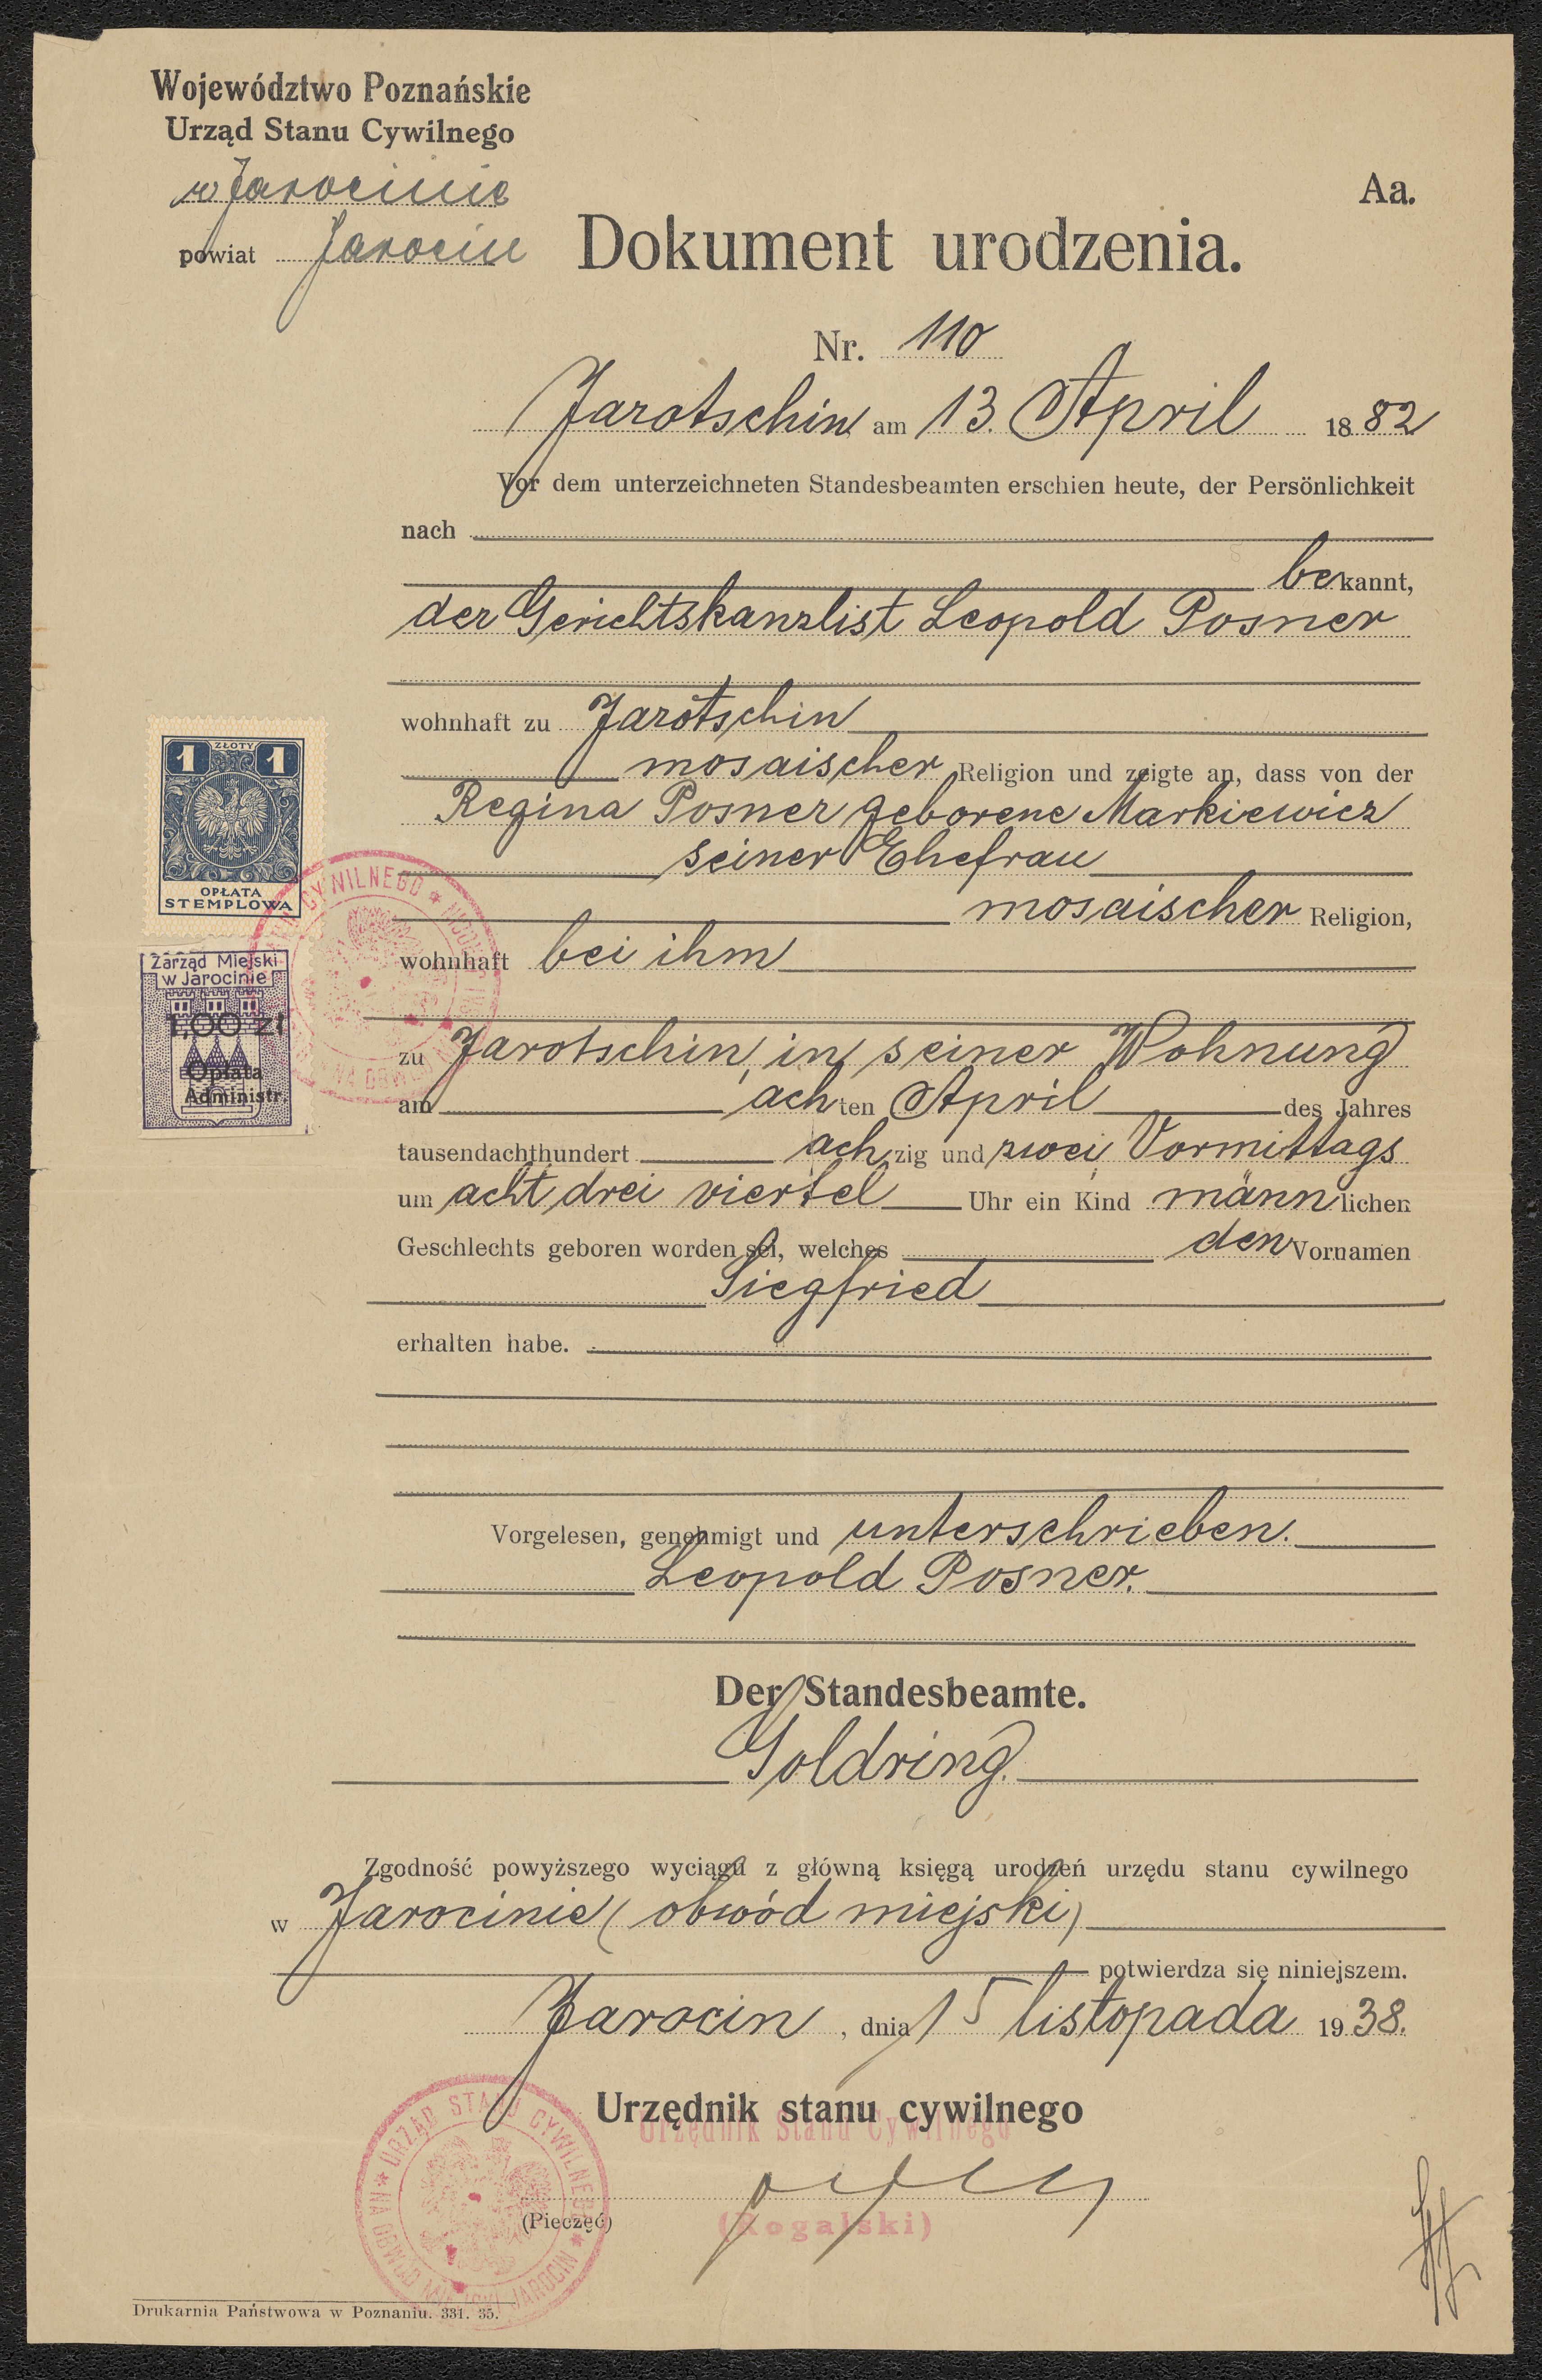 Województwo Poznańskie
Urząd Stanu Cywilnego
w Jarocinie
powiat Jarocin
Aa.
Dokument urodzenia.
Nr. 110
Jarotschin am 13. April 1882
Vor dem unterzeichneten Standesbeamten erschien heute, der Persönlichkeit
nach
bekannt,
der Gerichtskanzlist Leopold Posner
wohnhaft zu Jarotschin
mosaischer Religion und zeigte an, dass von der
Regina Posner geborene Markiewicz
seiner Ehefrau
mosaischer Religion,
wohnhaft bei ihm
zu Jarotschin, in seiner Wohnung
am achten April des Jahres
tausendachthundert achzig und zwei Vormittags
um acht drei viertel Uhr ein Kind männlichen
Geschlechts geboren worden sei, welches den Vornamen
Siegfried
erhalten habe.
Vorgelesen, genehmigt und unterschrieben.
Leopold Posner.
Der Standesbeamte.
Goldring.
Zgodność powyższego wyciągu z główną księgą urodzeń urzędu stanu cywilnego
w Jarocinie (obwód miejski)
potwierdza się niniejszem.
Jarocin, dnia 15 listopada 1938.
Urzędnik stanu cywilnego
Urzędnik Stanu Cywilnego
(Pieczęć)
(Rogalski)
Drukarnia Państwowa w Poznaniu. 331. 35.
1 ZŁOTY 1
OPŁATA
STEMPLOWA
Zarząd Miejski
w Jarocinie
1,00 zł
Opłata
Administr.
URZĄD STANU CYWILNEGO
NA OBWÓD MIEJSKI JAROCIN